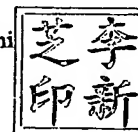 ni
李新
芝印